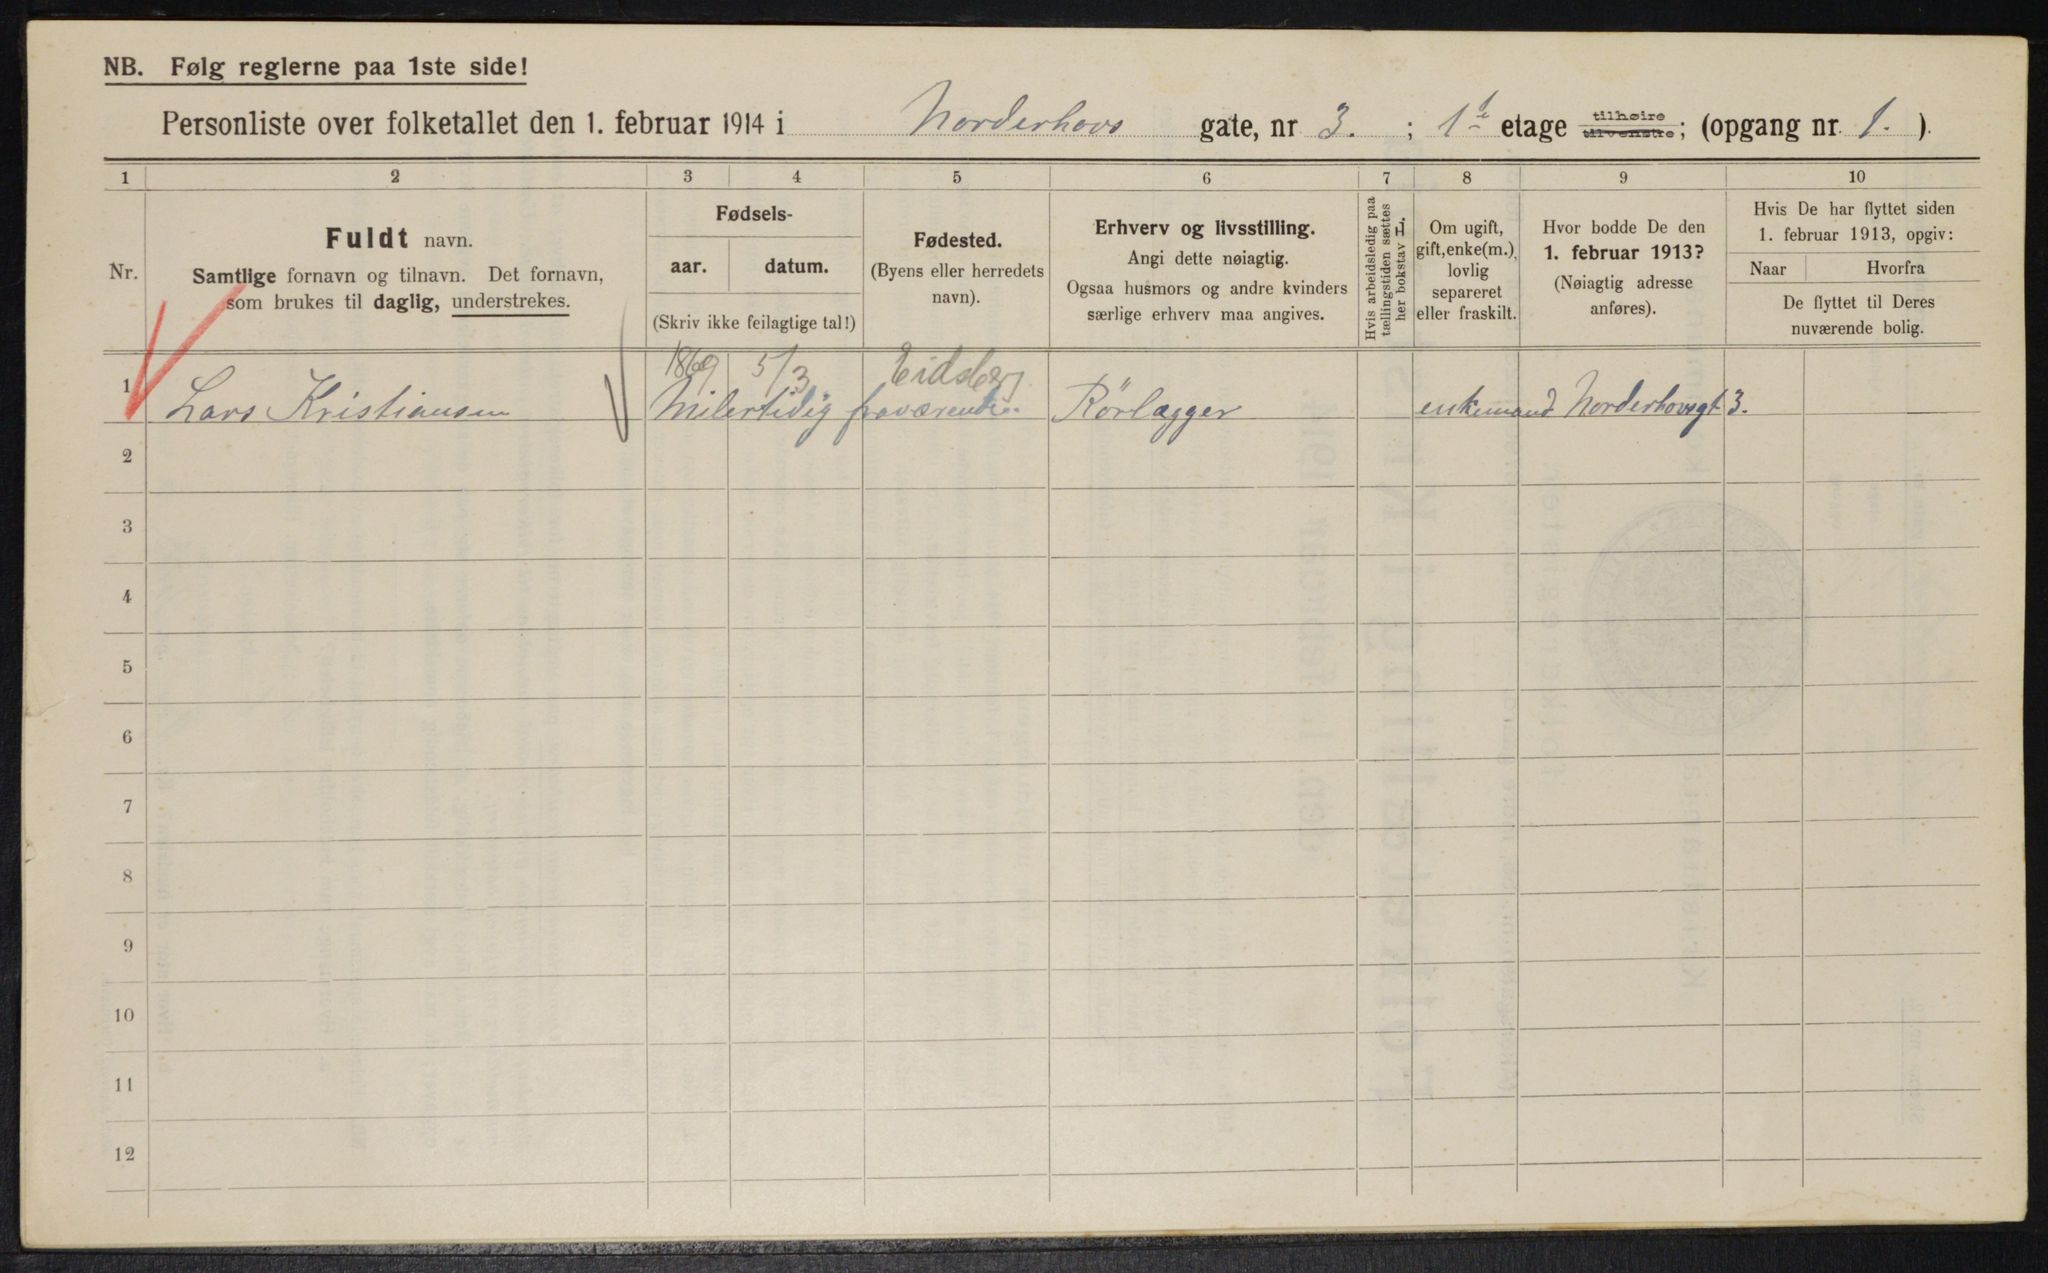 NB. Følg reglerne paa 1ste side!
Personliste over folketallet den 1. februar 1914 i Norderhovs gate, nr 3. ; 1ste etage tilhøire tilvenstre; (opgang nr. 1. ).
1 2 3 4 5 6 7 8 9 10
Nr.
Fuldt navn.
Samtlige fornavn og tilnavn. Det fornavn,
som brukes til daglig, understrekes.
Fødsels-
aar. datum.
(Skriv ikke feilagtige tal!)
Fødested.
(Byens eller herredets
navn).
Erhverv og livsstilling.
Angi dette nøiagtig.
Ogsaa husmors og andre kvinders
særlige erhverv maa angives.
Hvis arbeidsledig paa
tællingstiden sættes
her bokstav L.
Om ugift,
gift, enke(m.),
lovlig
separeret
eller fraskilt.
Hvor bodde De den
1. februar 1913?
(Nøiagtig adresse
anføres).
Hvis De har flyttet siden
1. februar 1913, opgiv:
Naar Hvorfra
De flyttet til Deres
nuværende bolig.
1869 5/3 Eidsberg
1 Lars Kristiansen Milertidig fraværende. Rörlægger enkemand Norderhovsgt 3.
2
3
4
5
6
7
8
9
10
11
12